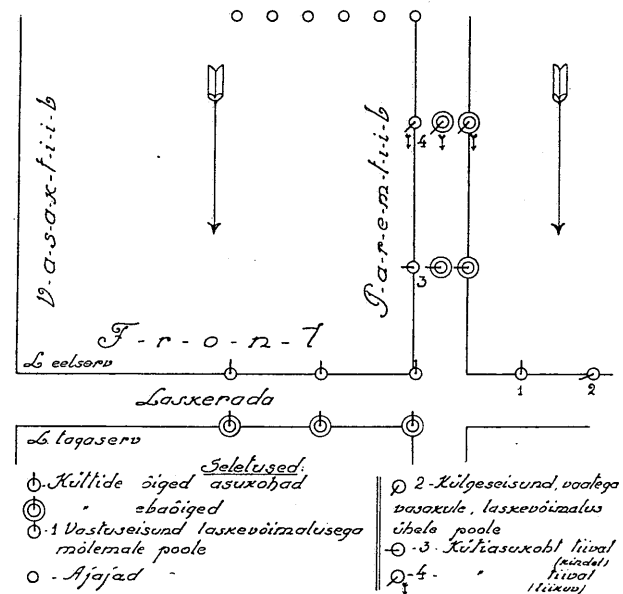 V-a-s-a-k-t-i-i-b
P-a-r-e-m-t-i-i-b
4
3
F-r-o-n-t
L. eelserv
1
1
2
Laskerada
L. tagaserv
Seletused:
Küttide õiged asukohad
" ebaõiged
-1 Vastuseisund laskevõimalusega
mõlemale poole
- Ajajad -
2-Külgeseisund, vaatega
vasakule, laskevõimalus
ühele poole
-3- Kütiasukoht tiival
(kindel)
-4- " tiival
(liikuv)